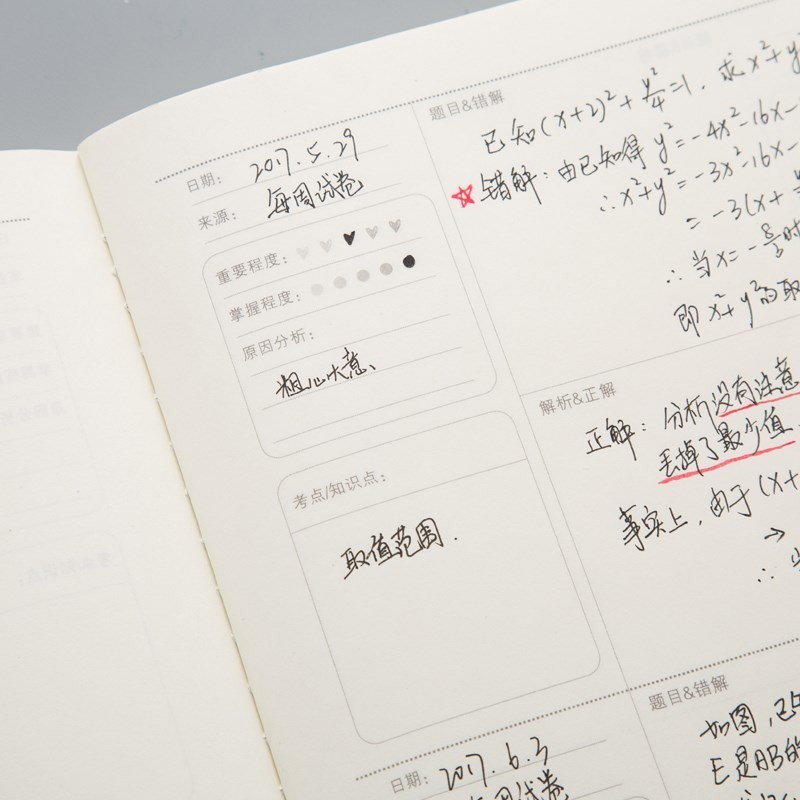 日期: 2017.5.29
来源: 每周试卷
重要程度:
掌握程度:
原因分析:
粗心大意、
考点/知识点:
取值范围.
题目&错解
已知(x+2)²+y²/4=1, 求x²+y²
错解: 由已知得 y²=-4x²-16x-
∴x²+y²=-3x²-16x-
=-3(x+
∴当x=-8/3时
即x²+y²的取
解析&正解
正解: 分析没有注意
丢掉了最少值.
事实上, 由于(x+
→
∴ 当
日期: 2017.6.3
周试卷
题目&错解
如图,已
E是AB的